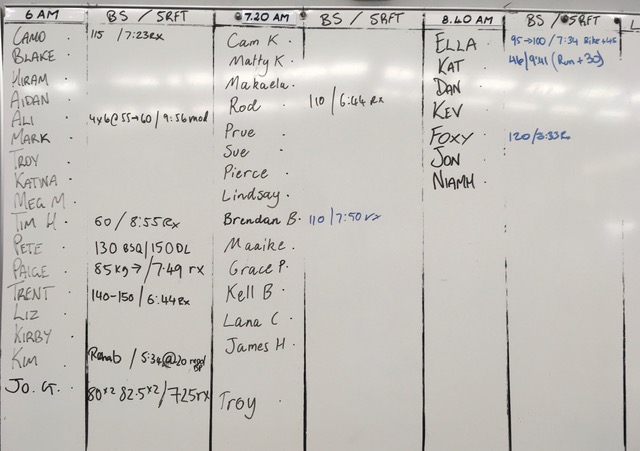 6 AM BS / 5RFT
CAMO 115 / 7:23 RX
BLAKE
HIRAM
AIDAN
ALI 4x6@55→60 / 9:56 mod
MARK
TROY
KATINA
MEG M
TIM H 60 / 8:55 Rx
PETE 130 BSQ/150 DL
PAIGE 85kg→/7.49 rx
TRENT 140-150 / 6:44 Rx
LIZ
KIRBY
KIM Rehab / 5:34@20
Jo. G. 80x2 82.5x2/725rx
7.20 AM BS / 5RFT
Cam K
Matty K
Makaela
Rod 110 / 6:44 Rx
Prue
Sue
Pierce
Lindsay
Brendan B. 110 / 7:50 rx
Maaike
Grace P.
Kell B
Lana C
James H
Troy
8.40 AM BS / 5RFT
ELLA 95→100 / 7:34 Bike+45
KAT 46/9:41 (Run+30)
DAN
KEV
FOXY
JON
NIAMH